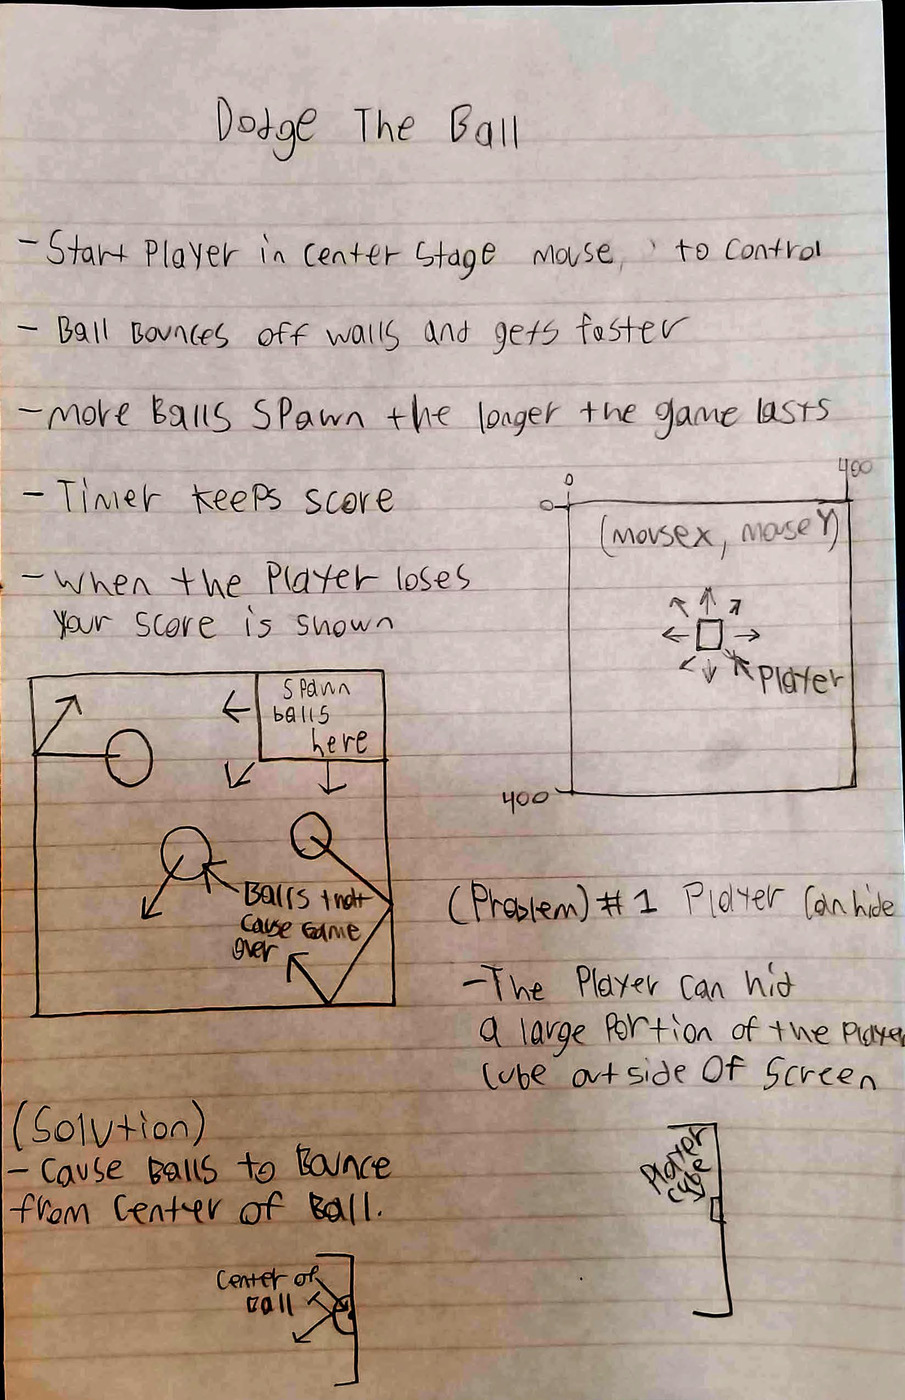 Dodge The Ball
- Start Player in center stage mouse, to control
- Ball Bounces off walls and gets faster
- more Balls Spawn the longer the game lasts
- Timer keeps score
- When the Player loses
your score is shown
0
400
0
(mouseX, mouseY)
Player
400
Spawn
balls
here
Balls that
cause Game
over
(Problem) #1 Player Can hide
- The Player can hid
a large Portion of the Player
Cube outside Of Screen
(Solution)
- Cause Balls to Bounce
from Center of Ball.
Player
cube
Center of
Ball